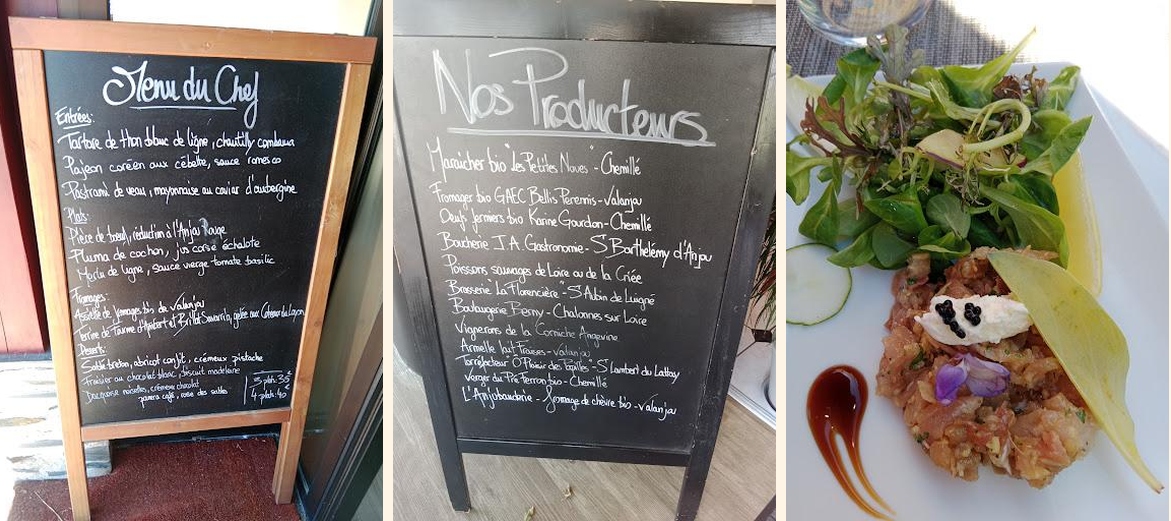 Menu du Chef
Entrées:
Tartare de thon blanc de ligne, chantilly combawa
Pajeon coréen aux cébette, sauce romesco
Pastrami de veau, mayonnaise au caviar d'aubergine
Plats:
Pièce de bœuf, réduction à l'Anjou Rouge
Pluma de cochon, jus corsé échalote
Merlu de ligne, sauce vierge tomate basilic
Fromages:
Assiette de fromages bio de Valanjou
Terrine de Fourme d'Ambert et Brillat Savarin, gelée aux Coteaux du Layon
Desserts:
Sablé breton, abricot confit, crémeux pistache
Fraisier au chocolat blanc, biscuit madeleine
Dacquoise noisettes, crémeux chocolat
3 plats: 35€
4 plats: 40€
Nos Producteurs
Maraîcher bio "Les Petites Noues" - Chemillé
Fromager bio GAEC Bellis Perennis - Valanjou
Oeufs fermiers bio Karine Gourdon - Chemillé
Boucherie J.A. Gastronomie - St Barthélémy d'Anjou
Poissons sauvages de Loire ou de la Criée
Brasserie "La Florencière" - St Aubin de Luigné
Boulangerie Berny - Chalonnes sur Loire
Vignerons de la Corniche Angevine
Armelle tout Fraises - Valanjou
Torréfacteur "O Plaisir des Papilles" - St Lambert du Lattay
Verger du Pré Ferron bio - Chemillé
L'Anjoubauderie - fromage de chèvre bio - Valanjou